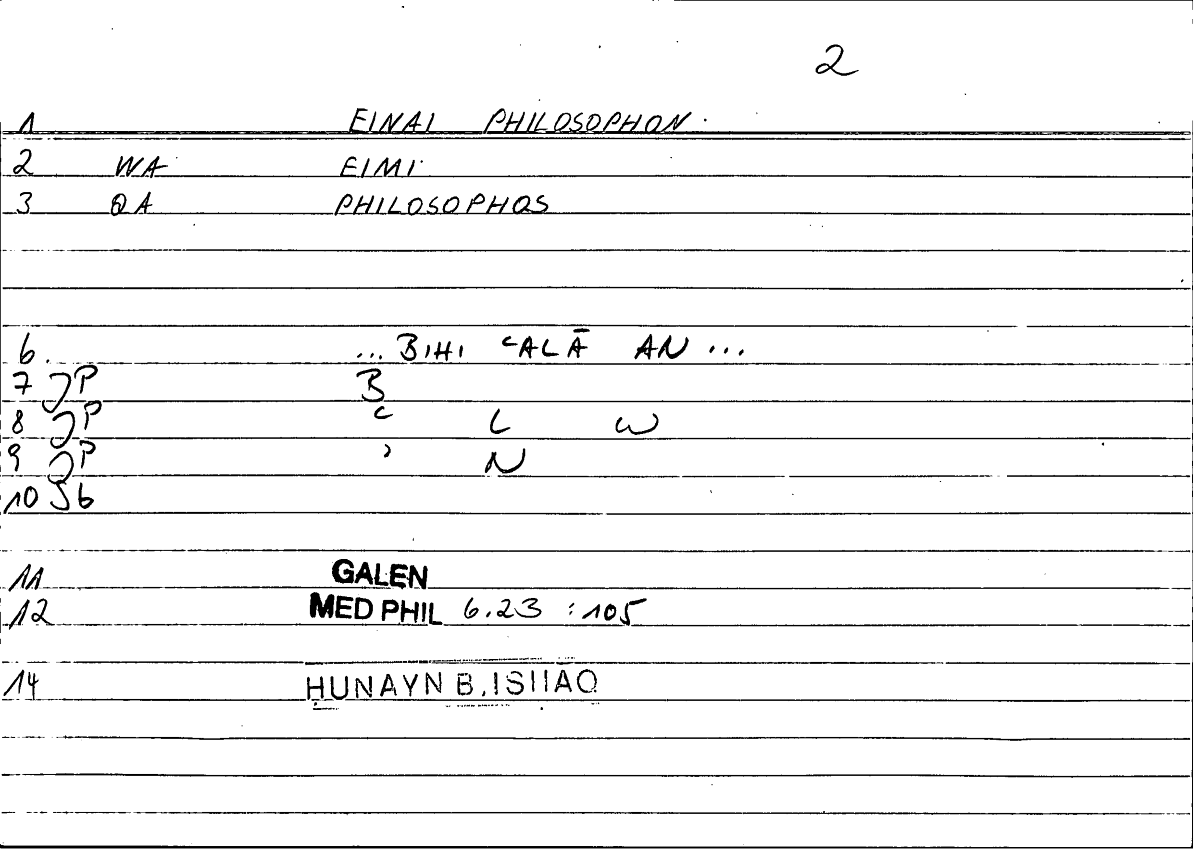 2
1 EINAI PHILOSOPHON
2 WA EIMI
3 QA PHILOSOPHOS
6. ... BIHI ʿALĀ AN ...
7 JP B
8 JP ʿ L W
9 JP ʾ N
10 Sb
11 GALEN
12 MED PHIL 6.23 :105
14 ḤUNAYN B. ISḤĀQ